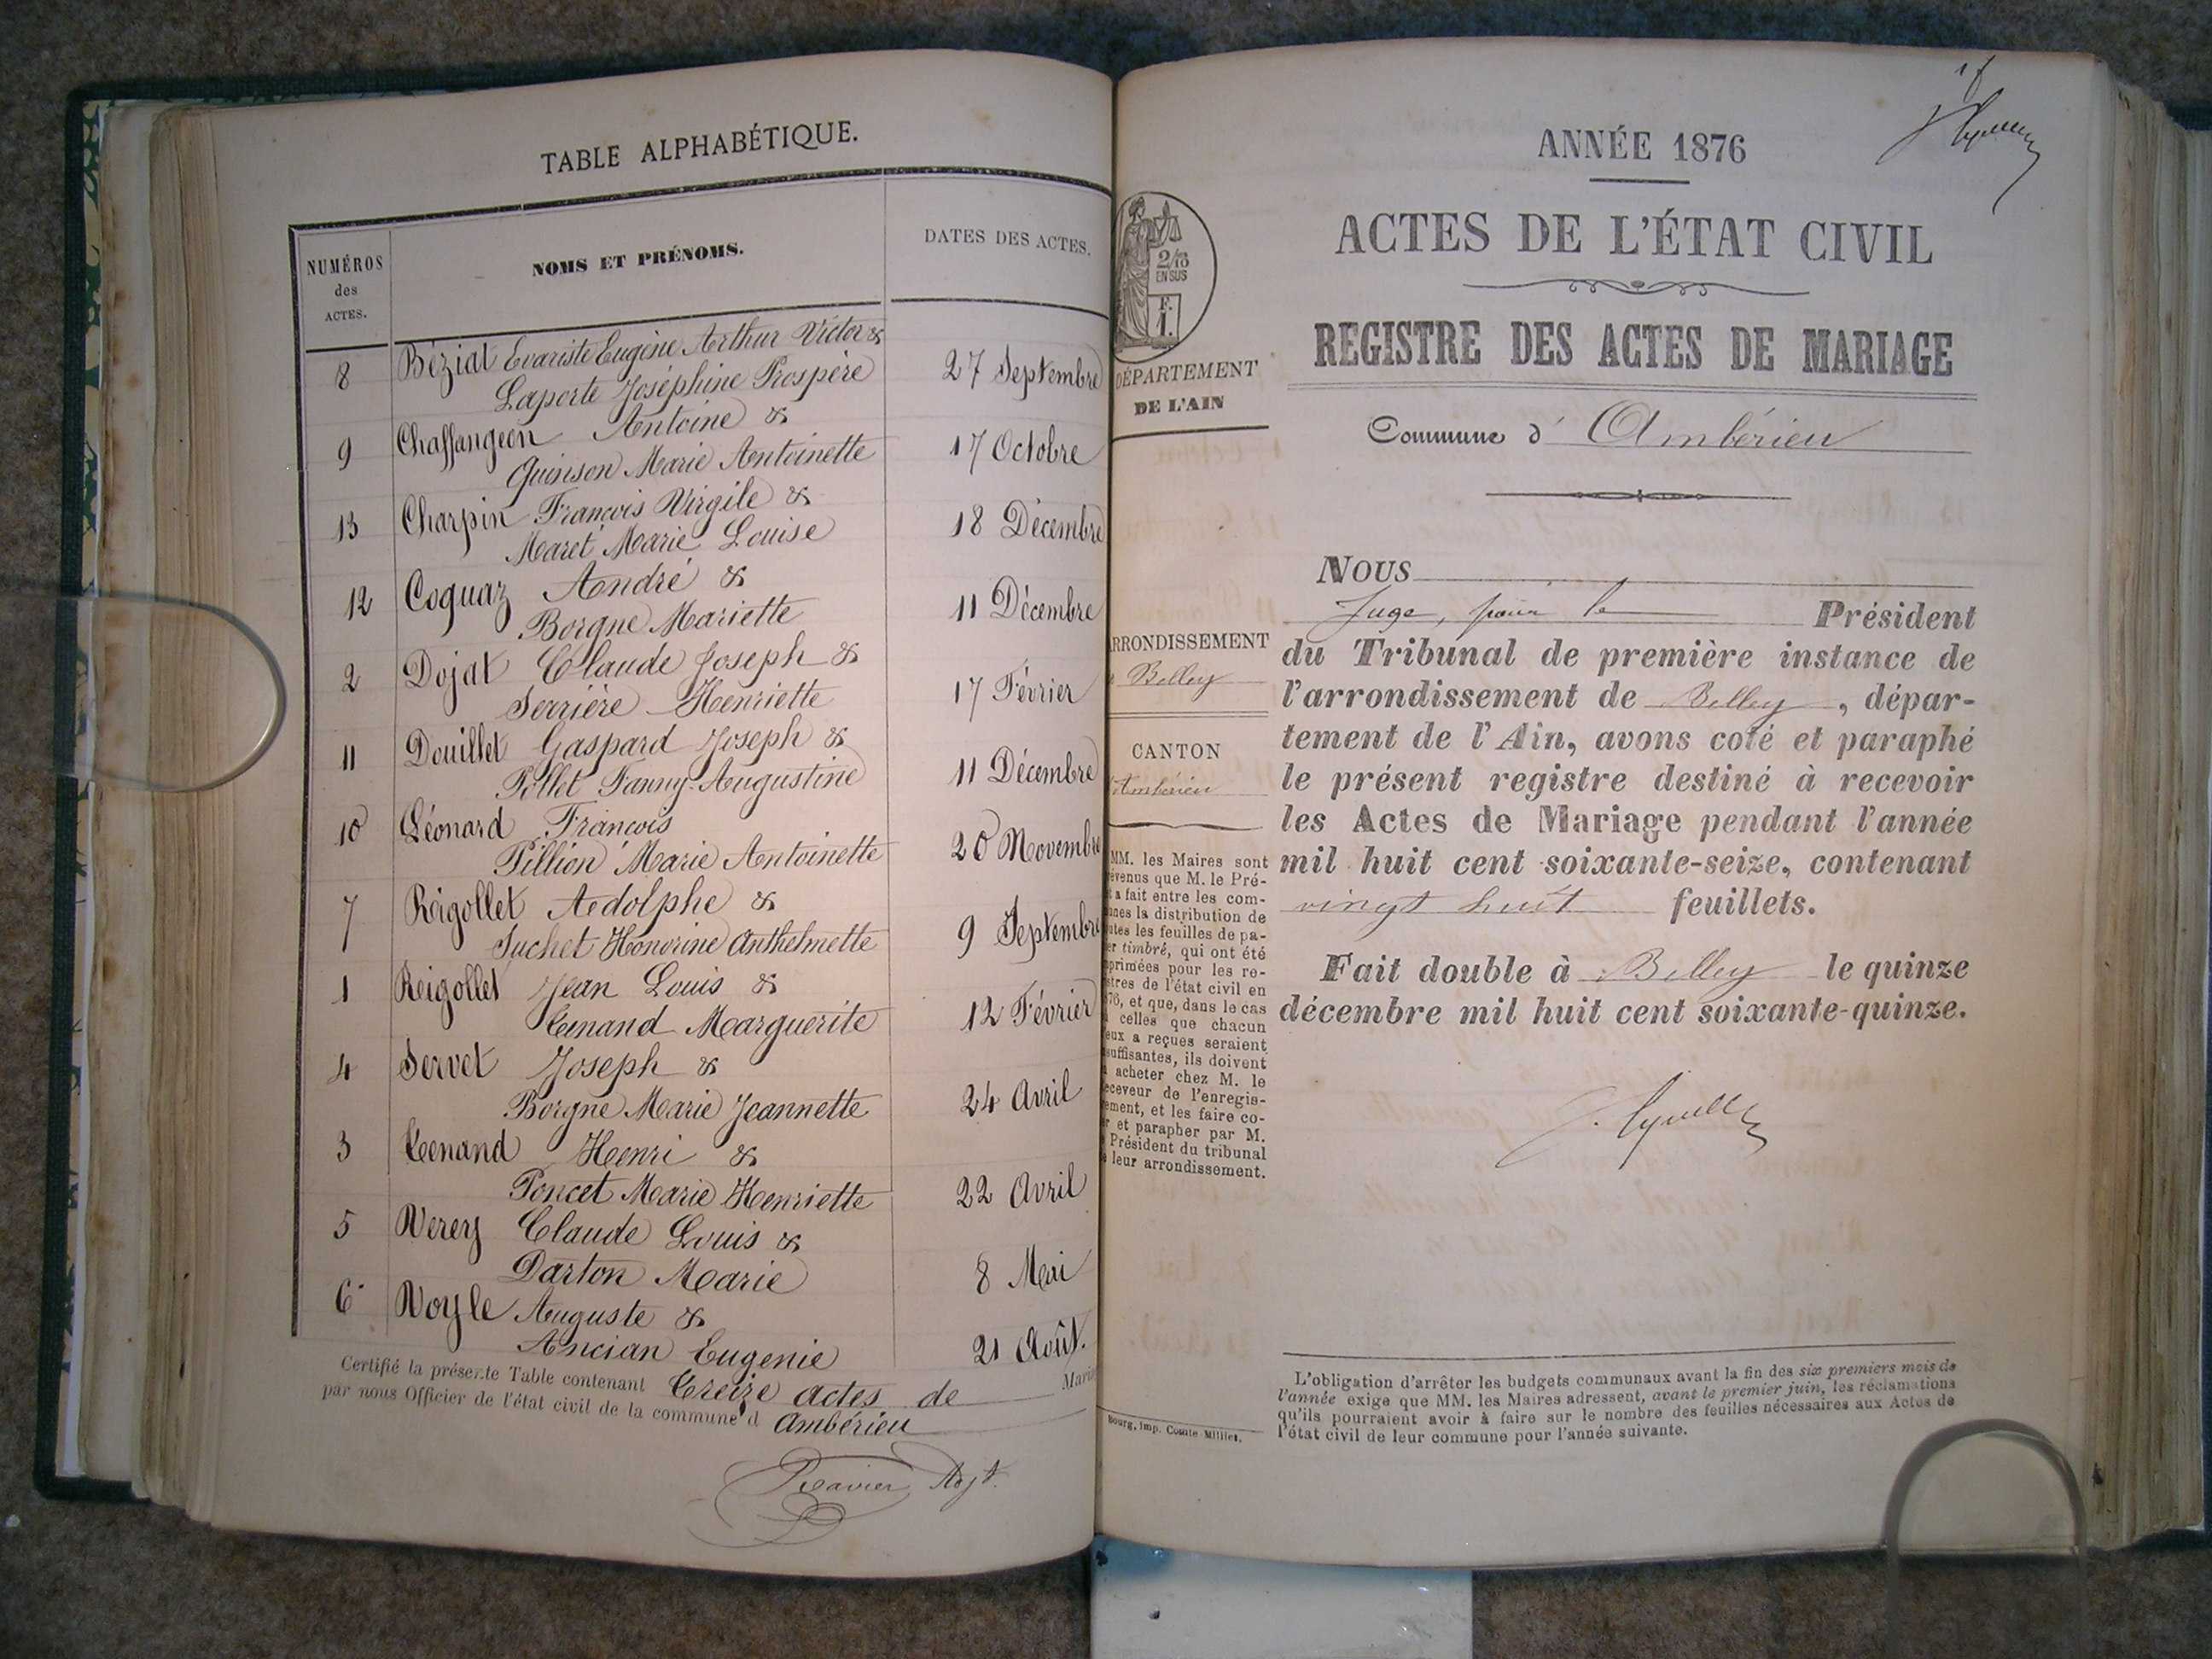 TABLE ALPHABÉTIQUE.
NUMÉROS
des
ACTES.
NOMS ET PRÉNOMS.
DATES DES ACTES.
8 Béziat Evariste Eugène Arthur Victor &
Laporte Joséphine Prospère 27 Septembre
9 Chaffangeon Antoine &
Quinson Marie Antoinette 17 Octobre
13 Charpin François Virgile &
Maret Marie Louise 18 Décembre
12 Coquaz André &
Borgne Mariette 11 Décembre
2 Dojat Claude Joseph &
Serrière Henriette 17 Février
11 Douillet Gaspard Joseph &
Pollet Fanny-Augustine 11 Décembre
10 Léonard François
Pillion Marie Antoinette 20 Novembre
7 Rigollet Adolphe &
Juchet Honorine Anthelmette 9 Septembre
1 Rigollet Jean Louis &
Tenand Marguerite 12 Février
4 Servet Joseph &
Borgne Marie Jeannette 24 Avril
3 Tenand Henri &
Poncet Marie Henriette 22 Avril
5 Verey Claude Louis &
Darton Marie 8 Mai
6 Voyle Auguste &
Ancian Eugenie 21 Août.
Certifié la présente Table contenant Treize actes de Maria
par nous Officier de l'état civil de la commune d Ambérieu
Ravier Adjt.
1f
ANNÉE 1876
ACTES DE L'ÉTAT CIVIL
REGISTRE DES ACTES DE MARIAGE
Commune d' Ambérieu
2/10
EN SUS
F.
1.
DÉPARTEMENT
DE L'AIN
RRONDISSEMENT
Belley
CANTON
d'Ambérieu
MM. les Maires sont
évenus que M. le Pré-
t a fait entre les com-
unes la distribution de
utes les feuilles de pa-
er timbré, qui ont été
primées pour les re-
stres de l'état civil en
76, et que, dans le cas
celles que chacun
eux a reçues seraient
suffisantes, ils doivent
acheter chez M. le
ceveur de l'enregis-
ement, et les faire co-
r et parapher par M.
Président du tribunal
e leur arrondissement.
Bourg, imp. Comte Milliet.
NOUS
Juge, pour le Président
du Tribunal de première instance de
l'arrondissement de Belley, dépar-
tement de l'Ain, avons coté et paraphé
le présent registre destiné à recevoir
les Actes de Mariage pendant l'année
mil huit cent soixante-seize, contenant
vingt huit feuillets.
Fait double à Belley le quinze
décembre mil huit cent soixante-quinze.
L'obligation d'arrêter les budgets communaux avant la fin des six premiers mois de
l'année exige que MM. les Maires adressent, avant le premier juin, les réclamations
qu'ils pourraient avoir à faire sur le nombre des feuilles nécessaires aux Actes de
l'état civil de leur commune pour l'année suivante.